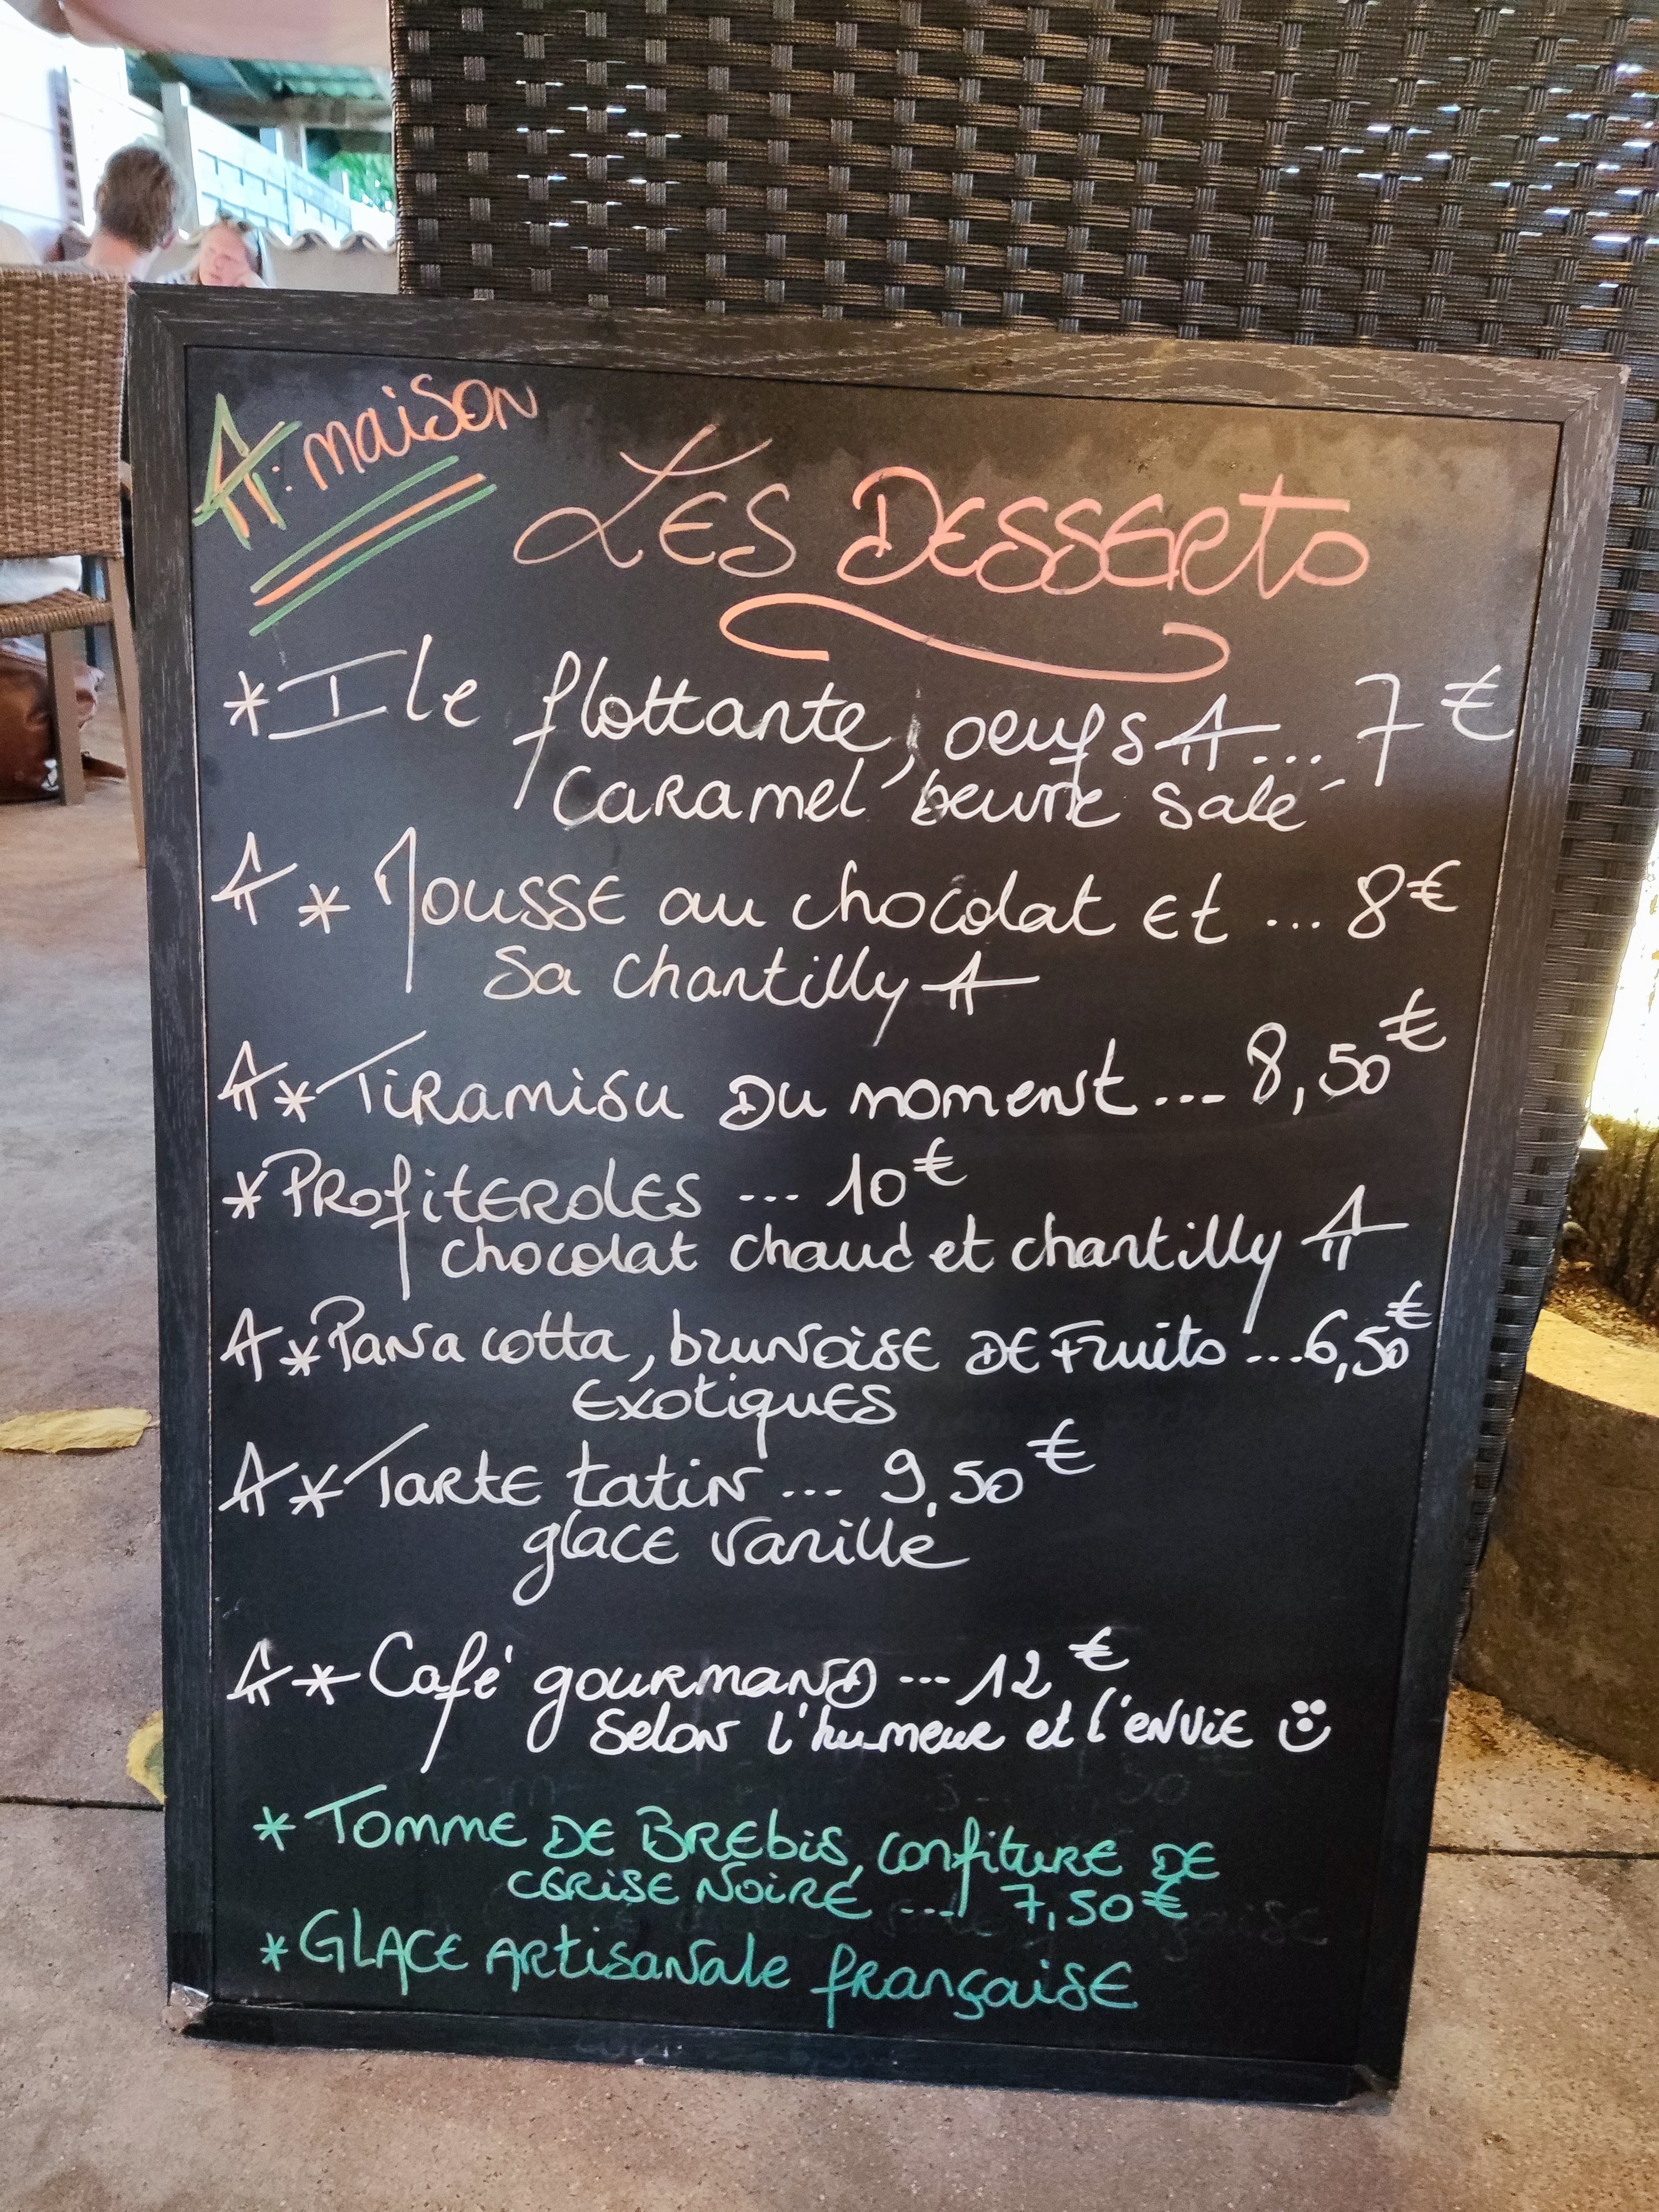 A: maison
LES DESSERTS
* Ile flottante, oeufs A... 7€
caramel beurre salé
A * Mousse au chocolat et ... 8€
sa chantilly A
A * Tiramisu du moment ... 8,50€
* Profiteroles ... 10€
chocolat chaud et chantilly A
A * Pana cotta, brunoise de Fruits ... 6,50€
exotiques
A * Tarte tatin ... 9,50€
glace vanille
A * Café gourmand ... 12€
selon l'humeur et l'envie
* Tomme de Brebis, confiture de
cerise noire ... 7,50€
* Glace artisanale française